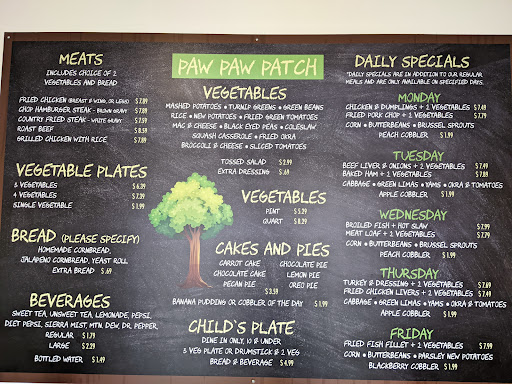 PAW PAW PATCH
MEATS
INCLUDES CHOICE OF 2
VEGETABLES AND BREAD
FRIED CHICKEN (BREAST & WING, OR LEGS) $ 7.89
CHOP HAMBURGER STEAK - BROWN GRAVY $ 7.89
COUNTRY FRIED STEAK - WHITE GRAVY $ 7.59
ROAST BEEF $ 8.59
GRILLED CHICKEN WITH RICE $ 7.89
VEGETABLE PLATES
3 VEGETABLES $ 6.39
4 VEGETABLES $ 7.39
SINGLE VEGETABLE $ 1.99
BREAD (PLEASE SPECIFY)
HOMEMADE CORNBREAD,
JALAPENO CORNBREAD, YEAST ROLL
EXTRA BREAD $ .69
BEVERAGES
SWEET TEA, UNSWEET TEA, LEMONADE, PEPSI,
DIET PEPSI, SIERRA MIST, MTN. DEW, DR. PEPPER,
REGULAR $ 1.79
LARGE $ 2.29
BOTTLED WATER $ 1.49
VEGETABLES
MASHED POTATOES • TURNIP GREENS • GREEN BEANS
RICE • NEW POTATOES • FRIED GREEN TOMATOES
MAC & CHEESE • BLACK EYED PEAS • COLESLAW
SQUASH CASSEROLE • FRIED OKRA
BROCCOLI & CHEESE • SLICED TOMATOES
TOSSED SALAD $ 2.99
EXTRA DRESSING $ .69
VEGETABLES
PINT $ 5.29
QUART $ 8.29
CAKES AND PIES
CARROT CAKE CHOCOLATE PIE
CHOCOLATE CAKE LEMON PIE
PECAN PIE OREO PIE
$ 2.59
BANANA PUDDING OR COBBLER OF THE DAY $ 1.99
CHILD'S PLATE
DINE IN ONLY, 10 & UNDER
3 VEG PLATE OR DRUMSTICK & 2 VEG
BREAD & BEVERAGE $ 4.99
DAILY SPECIALS
*DAILY SPECIALS ARE IN ADDITION TO OUR REGULAR
MEALS AND ARE ONLY AVAILABLE ON SPECIFIED DAYS.
MONDAY
CHICKEN & DUMPLINGS + 2 VEGETABLES $ 7.49
FRIED PORK CHOP + 2 VEGETABLES $ 7.79
CORN • BUTTERBEANS • BRUSSEL SPROUTS
PEACH COBBLER $ 1.99
TUESDAY
BEEF LIVER & ONIONS + 2 VEGETABLES $ 7.49
BAKED HAM + 2 VEGETABLES $ 7.89
CABBAGE • GREEN LIMAS • YAMS • OKRA & TOMATOES
APPLE COBBLER $ 1.99
WEDNESDAY
BROILED FISH + HOT SLAW $ 7.99
MEAT LOAF + 2 VEGETABLES $ 7.79
CORN • BUTTERBEANS • BRUSSEL SPROUTS
PEACH COBBLER $ 1.99
THURSDAY
TURKEY & DRESSING + 2 VEGETABLES $ 7.69
FRIED CHICKEN LIVERS + 2 VEGETABLES $ 7.49
CABBAGE • GREEN LIMAS • YAMS • OKRA & TOMATOES
APPLE COBBLER $ 1.99
FRIDAY
FRIED FISH FILLET + 2 VEGETABLES $ 7.99
CORN • BUTTERBEANS • PARSLEY NEW POTATOES
BLACKBERRY COBBLER $ 1.99